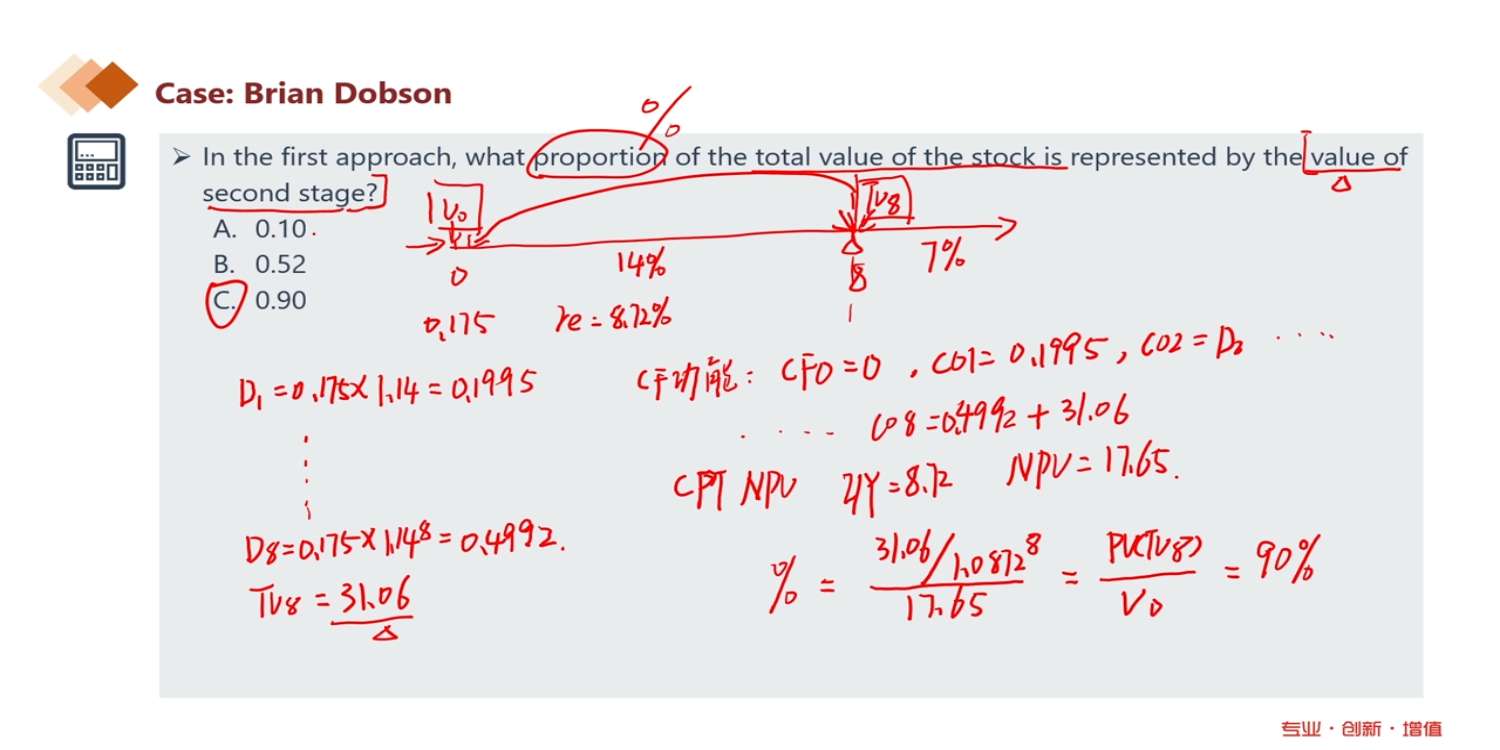 Case: Brian Dobson
➢ In the first approach, what proportion of the total value of the stock is represented by the value of
second stage?
A. 0.10
B. 0.52
C. 0.90
%
V₀
TV8
0
14%
8
7%
0.175
re = 8.72%
D₁ = 0.175 × 1.14 = 0.1995
CF功能: CF0 = 0, C01 = 0.1995, C02 = D₂ ·····
···· C08 = 0.4992 + 31.06
CPT NPV I/Y = 8.72 NPV = 17.65.
D8 = 0.175 × 1.14⁸ = 0.4992.
TV8 = 31.06
% = 31.06/1.0872⁸ / 17.65 = PV(TV8) / V0 = 90%
专业·创新·增值